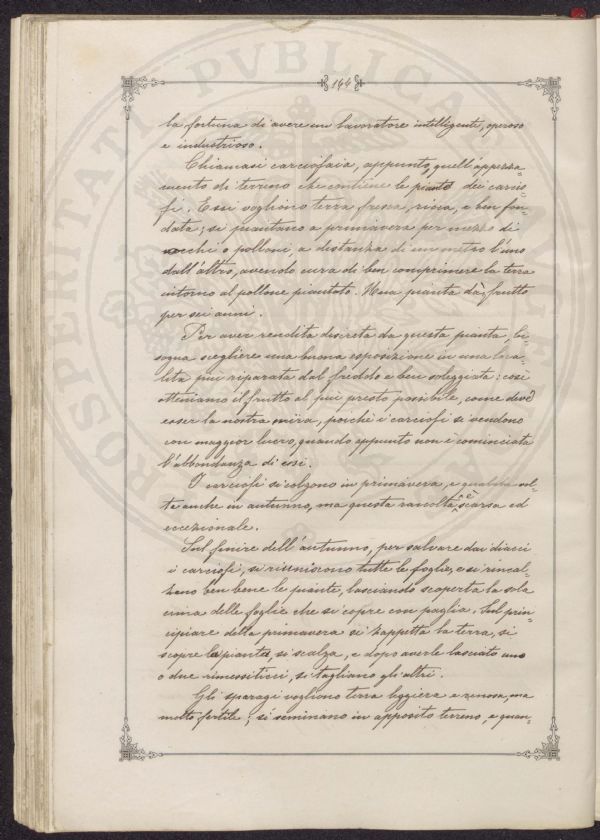 144
la fortuna di avere un lavoratore intelligente, operoso
e industrioso.
Chiamasi carciofaia, appunto, quell'appezza=
mento di terreno che contiene le piante dei carcio=
fi. Essi vogliono terra fresca, ricca, e ben fon=
data; si piantano a primavera per mezzo di
occhi o polloni, a distanza di un metro l'uno
dall'altro, avendo cura di ben comprimere la terra
intorno al pollone piantato. Una pianta dà frutto
per sei anni.
Per aver rendita discreta da questa pianta, bi=
sogna scegliere una buona esposizione in una loca=
lità più riparata dal freddo e ben soleggiata: così
otteniamo il frutto al più presto possibile, come deve
esser la nostra mira, poichè i carciofi si vendono
con maggior lucro, quando appunto non è cominciata
l'abbondanza di essi.
I carciofi si colgono in primavera, e qualche vol=
ta anche in autunno, ma questa raccolta è scarsa ed
eccezionale.
Sul finire dell'autunno, per salvare dai diacci
i carciofi, si riuniscono tutte le foglie, e si rincal=
zano ben bene le piante, lasciando scoperta la sola
cima delle foglie che si copre con paglia. Sul prin=
cipiare della primavera si zappetta la terra, si
scopre la pianta, si scalza, e dopo averle lasciato uno
o due rimessiticci, si tagliano gli altri.
Gli sparagi vogliono terra leggiera e renosa, ma
molto fertile; si seminano in apposito terreno, e quan=
PVBLICAE
PROSPERITATI